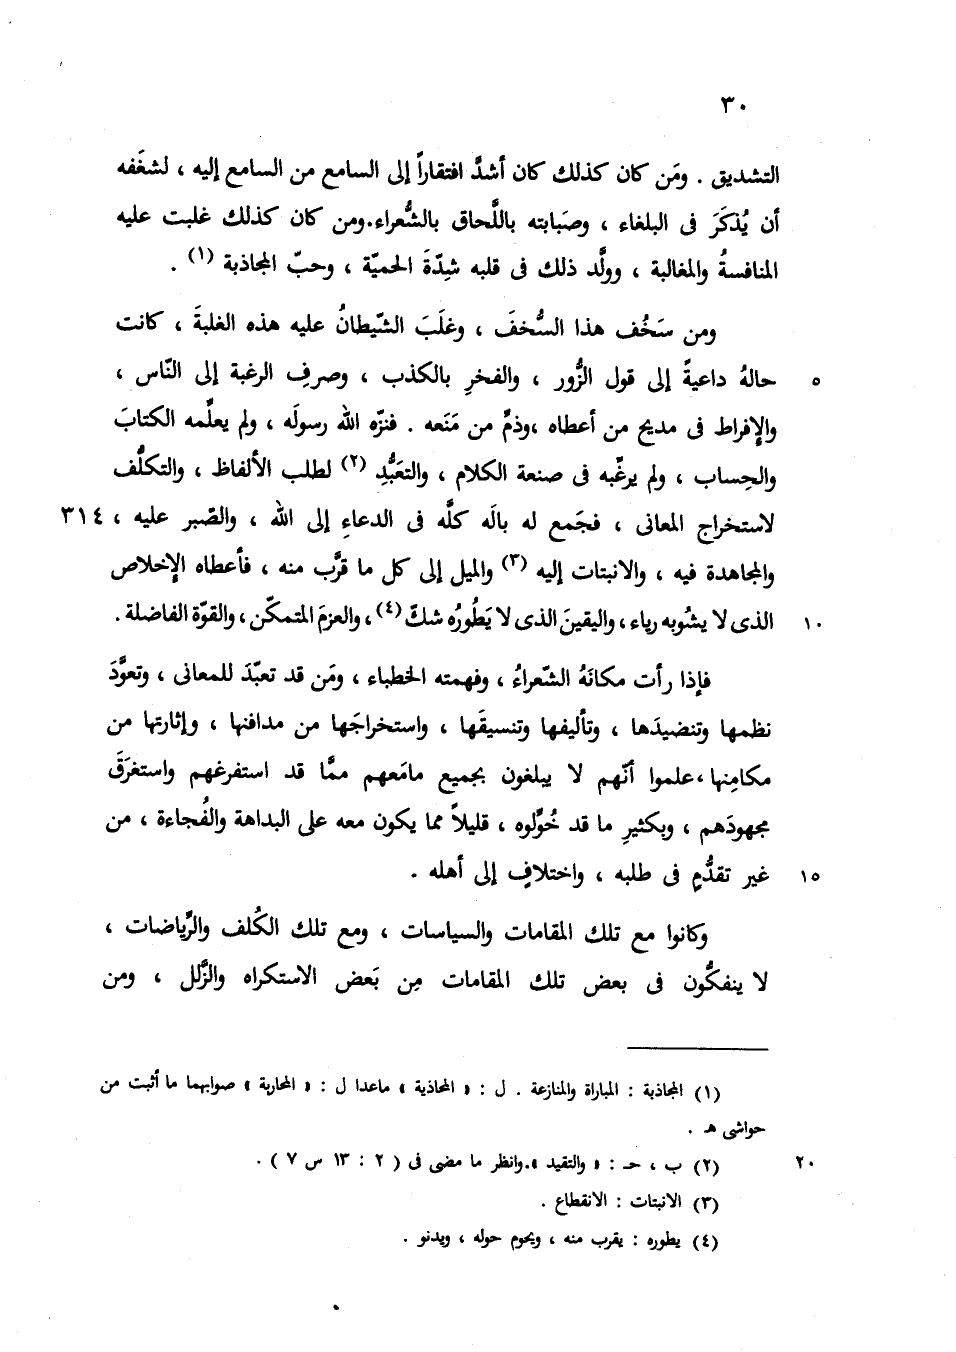 ٣٠
التشديق . ومَن كان كذلك كان أشدَّ افتقاراً إلى السامع من السامع إليه ، لشغَفه
أن يُذكَرَ فى البلغاء ، وصَبابته باللَّحاق بالشُّعراء.ومن كان كذلك غلبت عليه
المنافسةُ والمغالبة ، وولَّد ذلك فى قلبه شِدّةَ الحميّة ، وحبّ المجاذبة (١) .
ومن سَخُف هذا السُّخفَ ، وغلَبَ الشّيطانُ عليه هذه الغلبةَ ، كانت
٥ حالهُ داعيةً إلى قول الزُّور ، والفخرِ بالكذب ، وصرفِ الرغبة إلى النّاس ،
والإفراط فى مديح من أعطاه ،وذمِّ من مَنَعه . فنزّه الله رسولَه ، ولم يعلِّمه الكتابَ
والحِساب ، ولم يرغِّبه فى صنعة الكلام ، والتعَبُّدِ (٢) لطلب الألفاظ ، والتكلُّف
لاستخراج المعانى ، فجَمع له بالَه كلَّه فى الدعاءِ إلى الله ، والصّبر عليه ، ٣١٤
والمجاهدة فيه ، والانبتات إليه (٣) والميل إلى كل ما قرَّب منه ، فأعطاه الإخلاص
١٠ الذى لا يشُوبه رياء ، واليقينَ الذى لا يَطُورُه شكّ (٤) ، والعزمَ المتمكّن ، والقوّة الفاضلة .
فإذا رأت مكانَهُ الشّعراءُ ، وفهمته الخطباء ، ومَن قد تعبّدَ للمعانى ، وتعوَّدَ
نظمها وتنضيدَها ، وتأليفها وتنسيقَها ، واستخراجَها من مدافنها ، وإثارتها من
مكامِنها ،علموا أنّهم لا يبلغون بجميع مامَعهم ممَّا قد استفرغهم واستغرَقَ
مجهودَهم ، وبكثيرِ ما قد خُوِّلوه ، قليلاً مما يكون معه على البداهة والفُجاءة ، من
١٥ غير تقدُّمٍ فى طلبه ، واختلافٍ إلى أهله .
وكانوا مع تلك المقامات والسياسات ، ومع تلك الكُلف والرِّياضات ،
لا ينفكُّون فى بعض تلك المقامات مِن بَعض الاستكراه والزَّلل ، ومن
(١) المجاذبة : المباراة والمنازعة . ل : « المحاذية » ماعدا ل : « المحاربة » صوابهما ما أثبت من
حواشى هـ .
٢٠ (٢) ب ، حـ : « والتقيد ».وانظر ما مضى فى ( ٢ : ١٣ س ٧ ) .
(٣) الانبتات : الانقطاع .
(٤) يطوره : يقرب منه ، ويحوم حوله ، ويدنو .